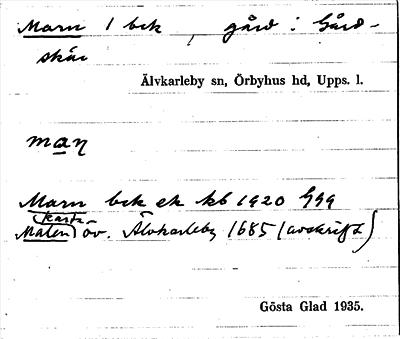 Marn 1 bek, gård i Gård-
skär
Älvkarleby sn, Örbyhus hd, Upps. l.
man̥
Marn bek ek kb 1920 GGG
(karta
Malen) öv. Älvkarleby 1685 (avskrift)
Gösta Glad 1935.